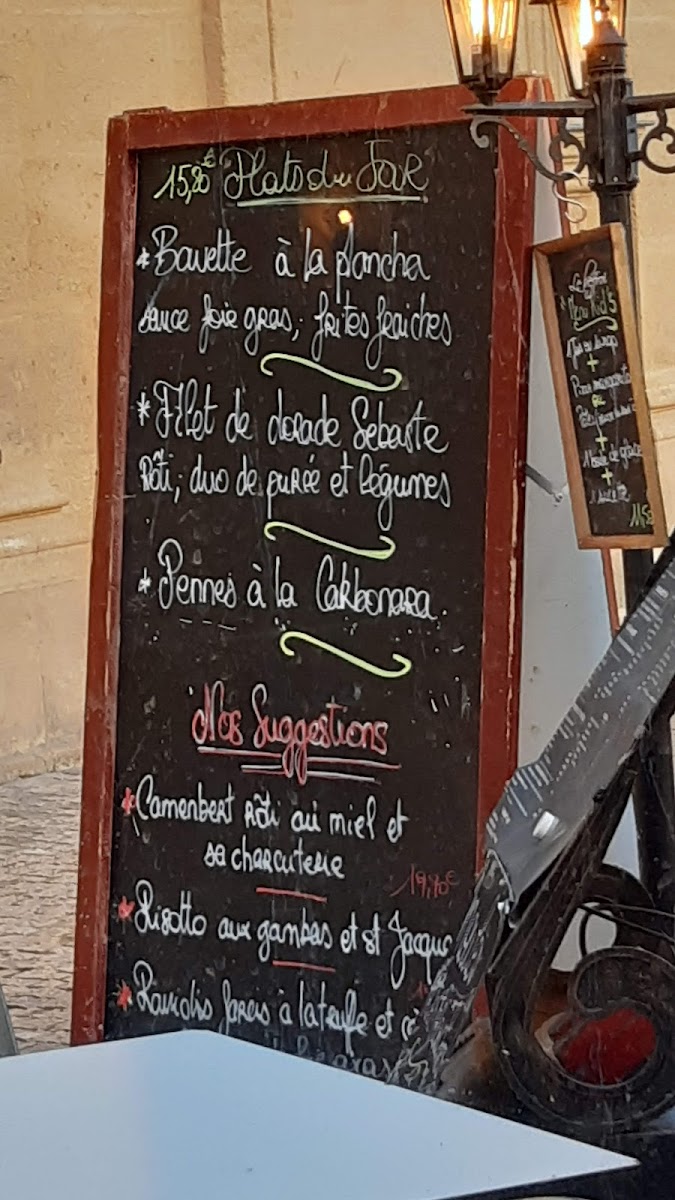 15,80€ Plats du Jour
* Bavette à la plancha
sauce foie gras, frites fraiches
* Filet de dorade Sébaste
Rôti, duo de purée et légumes
* Pennes à la Carbonara
Nos Suggestions
* Camenbert rôti au miel et
sa charcuterie
19,90€
* Risotto aux gambas et st Jacque
* Raviolis farcis à la truffe et
Menu Kid's
+
+
+
+